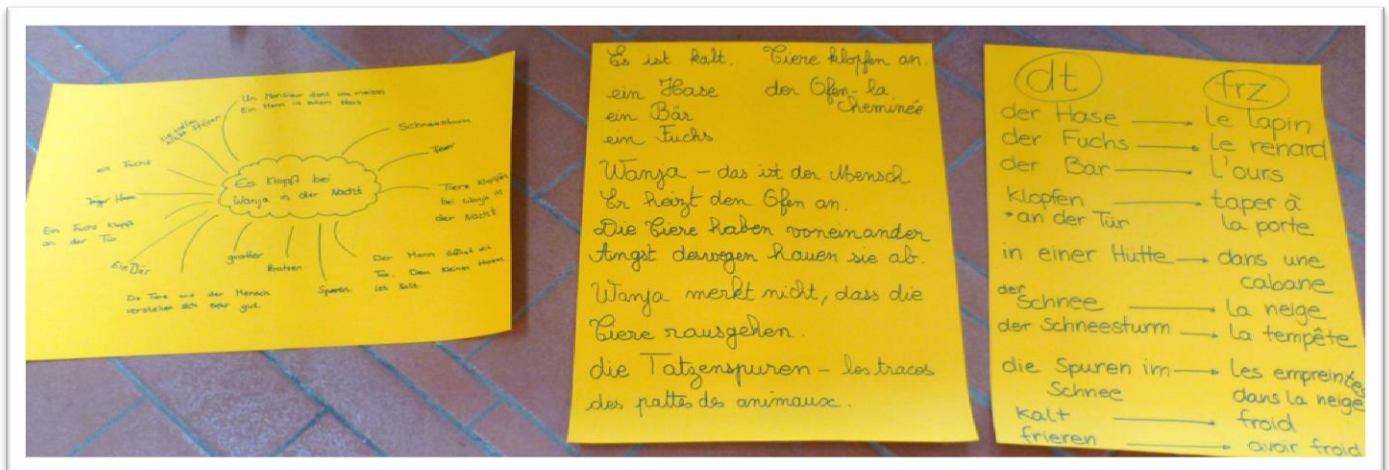 Un Monsieur dans une maison
Ein Mann in einem Haus
Schneesturm
Feuer
Tiere klopfen
bei Wanja in
der Nacht
Der Mann öffnet die
Tür. Dem kleinen Hasen
ist kalt.
Spuren
Bratzen
großer
Die Tiere und der Mensch
verstehen sich sehr gut.
Ein Bär
Ein Fuchs klopft
an der Tür.
Jäger Hann
ein Fuchs
sie wollen
nicht stören
Es klopft bei
Wanja in der Nacht
Es ist kalt. Tiere klopfen an.
ein Hase der Ofen - la
cheminée
ein Bär
ein Fuchs
Wanja - das ist der Mensch
Er heizt den Ofen an.
Die Tiere haben voneinander
Angst deswegen hauen sie ab.
Wanja merkt nicht, dass die
Tiere rausgehen.
die Tatzenspuren - les traces
des pattes des animaux.
dt frz
der Hase → le lapin
der Fuchs → le renard
der Bär → l'ours
klopfen → taper à
an der Tür la porte
in einer Hütte → dans une
cabane
der
Schnee → la neige
der Schneesturm → la tempête
die Spuren im → les empreintes
Schnee dans la neige
kalt → froid
frieren → avoir froid